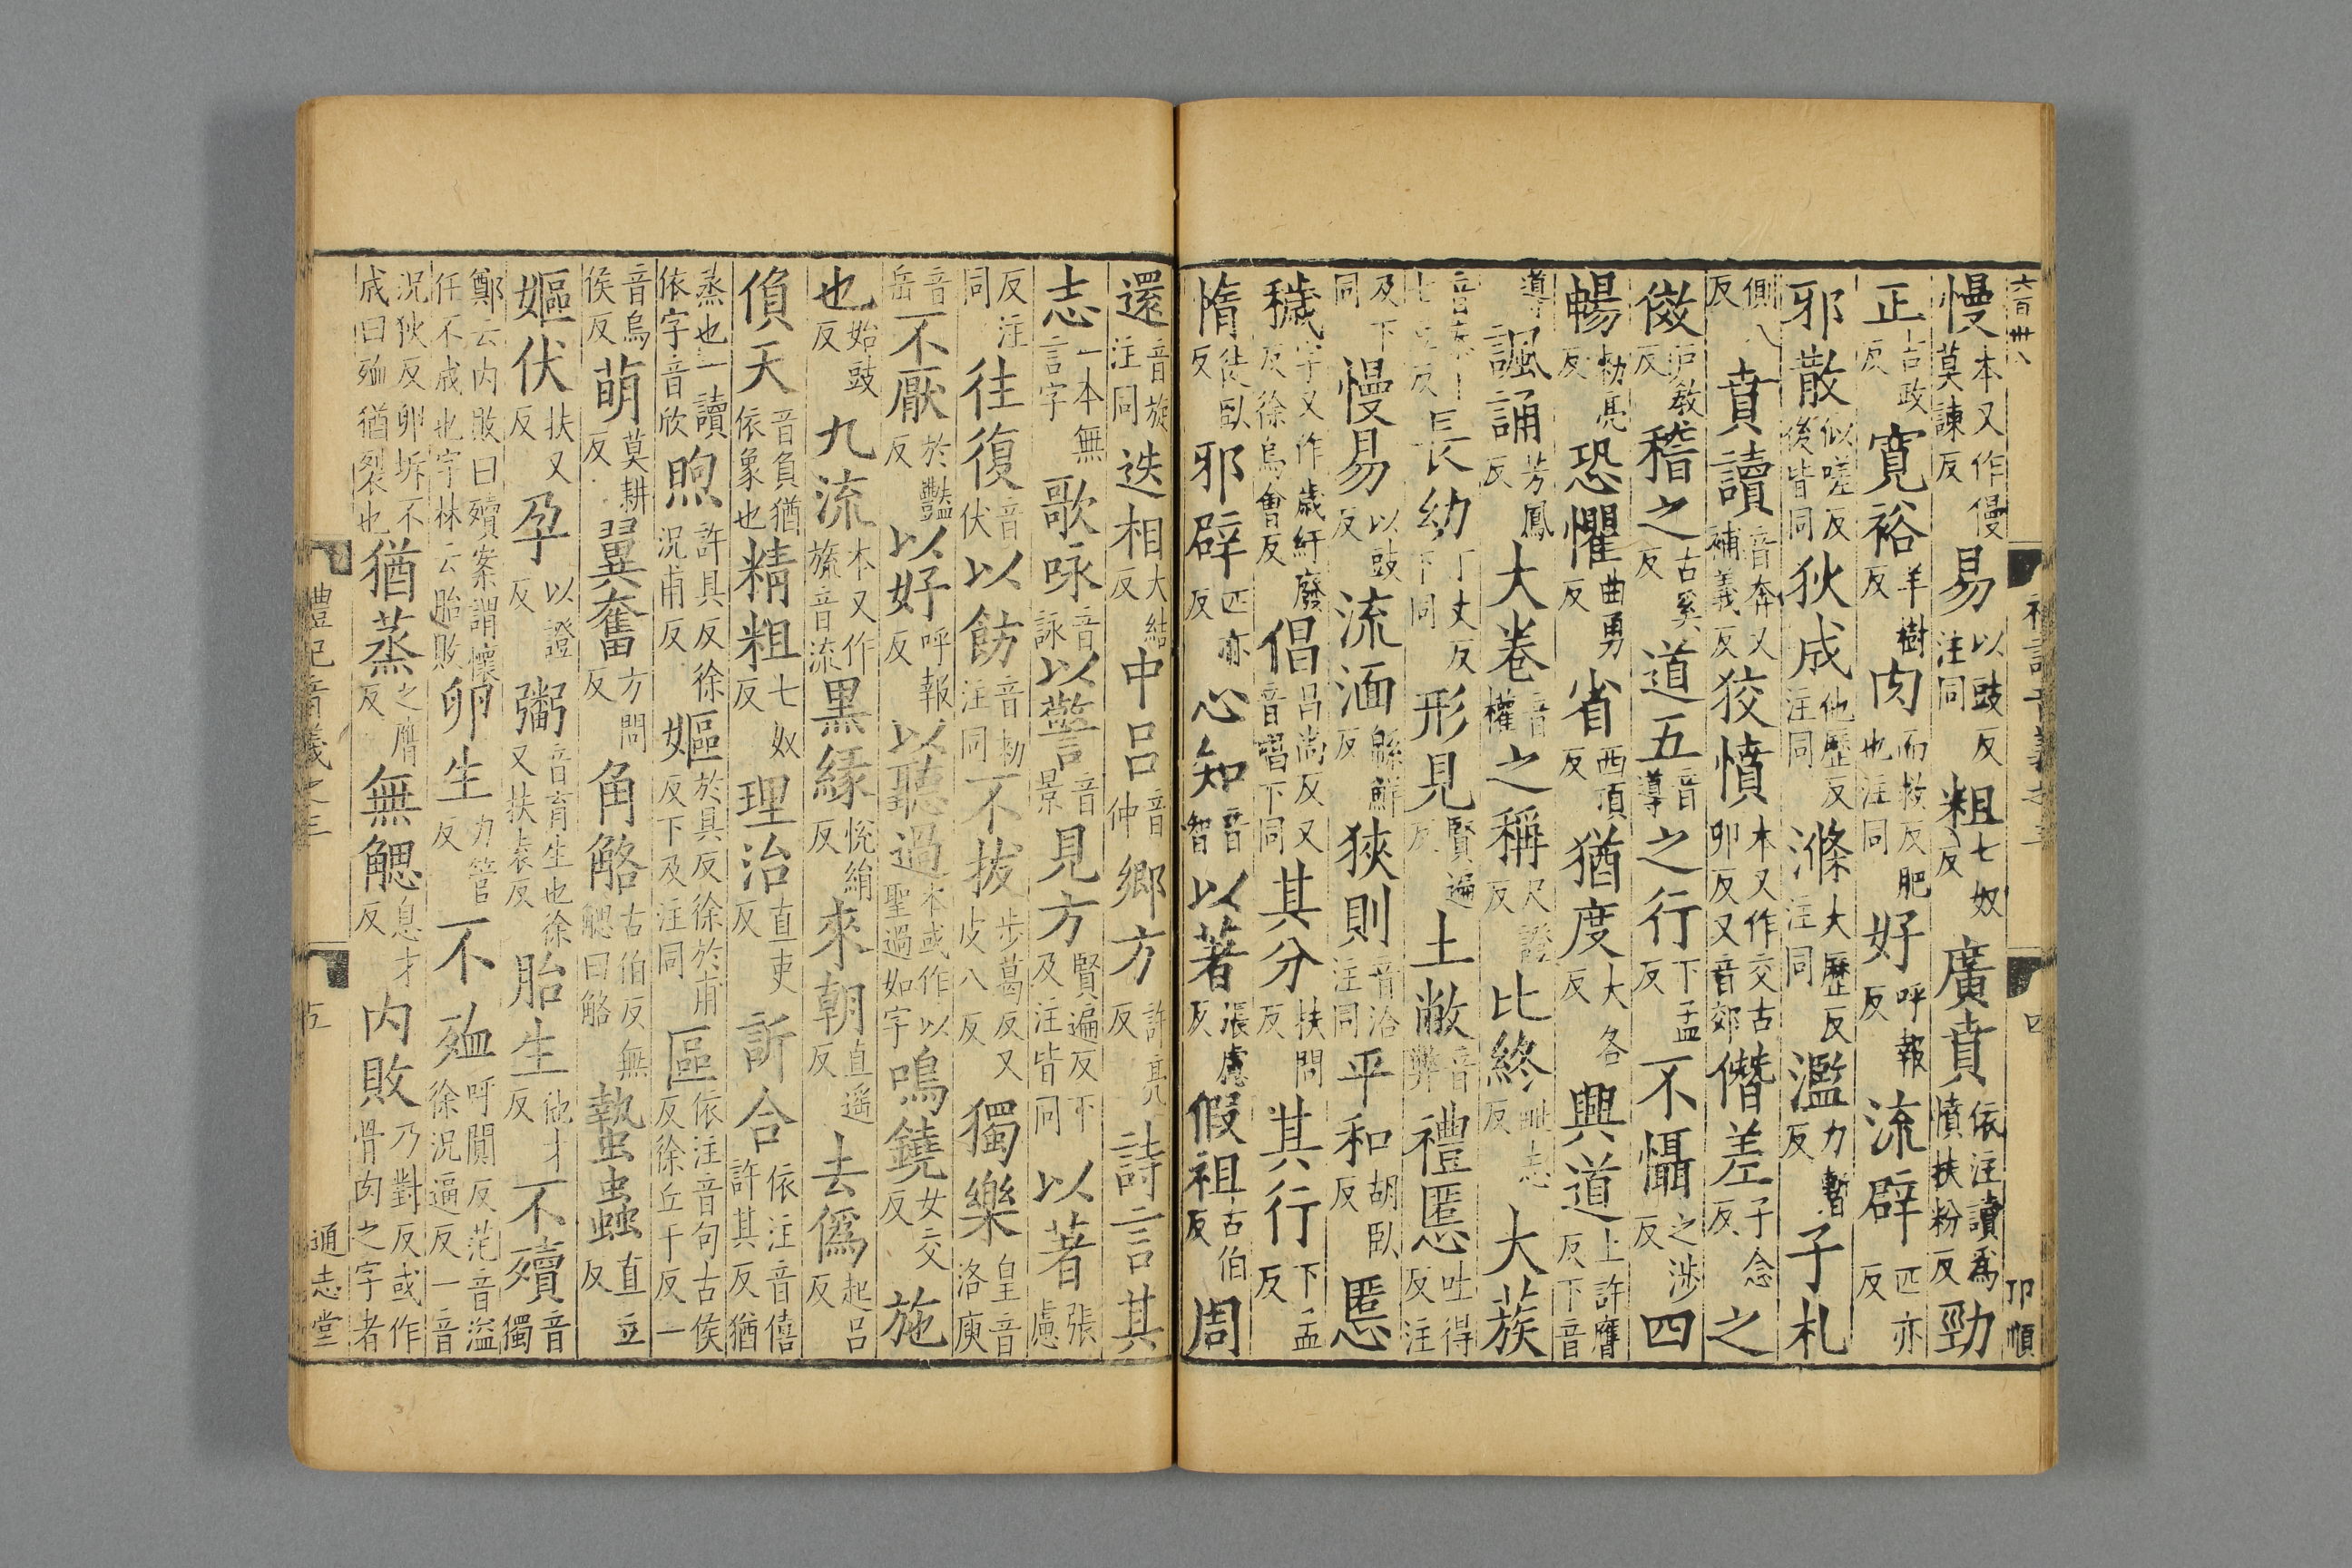 六百卅八 禮記音義之三 四 邛順
慢本又作僈莫諫反易以豉反注同粗七奴反廣賁依注讀爲憤扶粉反勁
正吉政反寬裕羊樹反肉而救反肥也注同好呼報反流辟匹亦反
邪散似嗟反後皆同狄成他歷反注同滌大歷反注同濫力暫反子札
側八反賁讀音奔又補義反狡憤本又作交古卯反又音郊僭差子念反之
傚戸教反稽之古奚反道五音導之行下孟反不懾之涉反四
暢勑亮反恐懼曲勇反省西頂反猶度大各反興道上許膺反下音
導諷誦芳鳳反大卷音權之稱尺證反比終毗志反大蔟
長幼丁丈反下同形見賢遍反土敝音弊禮慝吐得反注
及下同慢易以豉反流湎緜鮮反狹則音洽注同平和胡臥反慝
穢字又作薉紆廢反徐烏會反倡昌尚反又音唱下同其分扶問反其行下孟反
惰徒臥反邪辟匹亦反心知音智以著張慮反假祖古伯反周
還音旋注同迭相大結反中呂音仲鄉方許亮反詩言其
志一本無言字歌咏音詠以警音景見方賢遍反下及注皆同以著張慮
反注同往復音伏以飭音勑注同不拔步葛反又皮八反獨樂皇音洛庾
音岳不厭於豔反以好呼報反以聽過本或作以聖過如字鳴鐃女交反施
也始豉反九流本又作旒音流黑緣悅絹反來朝直遥反去僞起呂反
偩天音負猶依象也精粗七奴反理治直吏反訢合依注音僖許其反猶
蒸也一讀依字音欣煦許具反徐況甫反嫗於具反徐於甫反下及注同區依注音句古侯反徐丘于反一
音烏侯反萌莫耕反翼奮方問反角觡古伯反無䚡曰觡蟄蟲直立反
嫗伏扶又反孕以證反鬻音育生也徐又扶袁反胎生他才反不殰音獨
鄭云内敗曰殰案謂懷任不成也字林云胎敗卵生力管反不殈呼闃反范音溢徐況逼反一音
況狄反卵坼不成曰殈猶裂也猶蒸之膺反無䚡息才反内敗乃對反或作骨肉之字者
禮記音義之三 五 通志堂